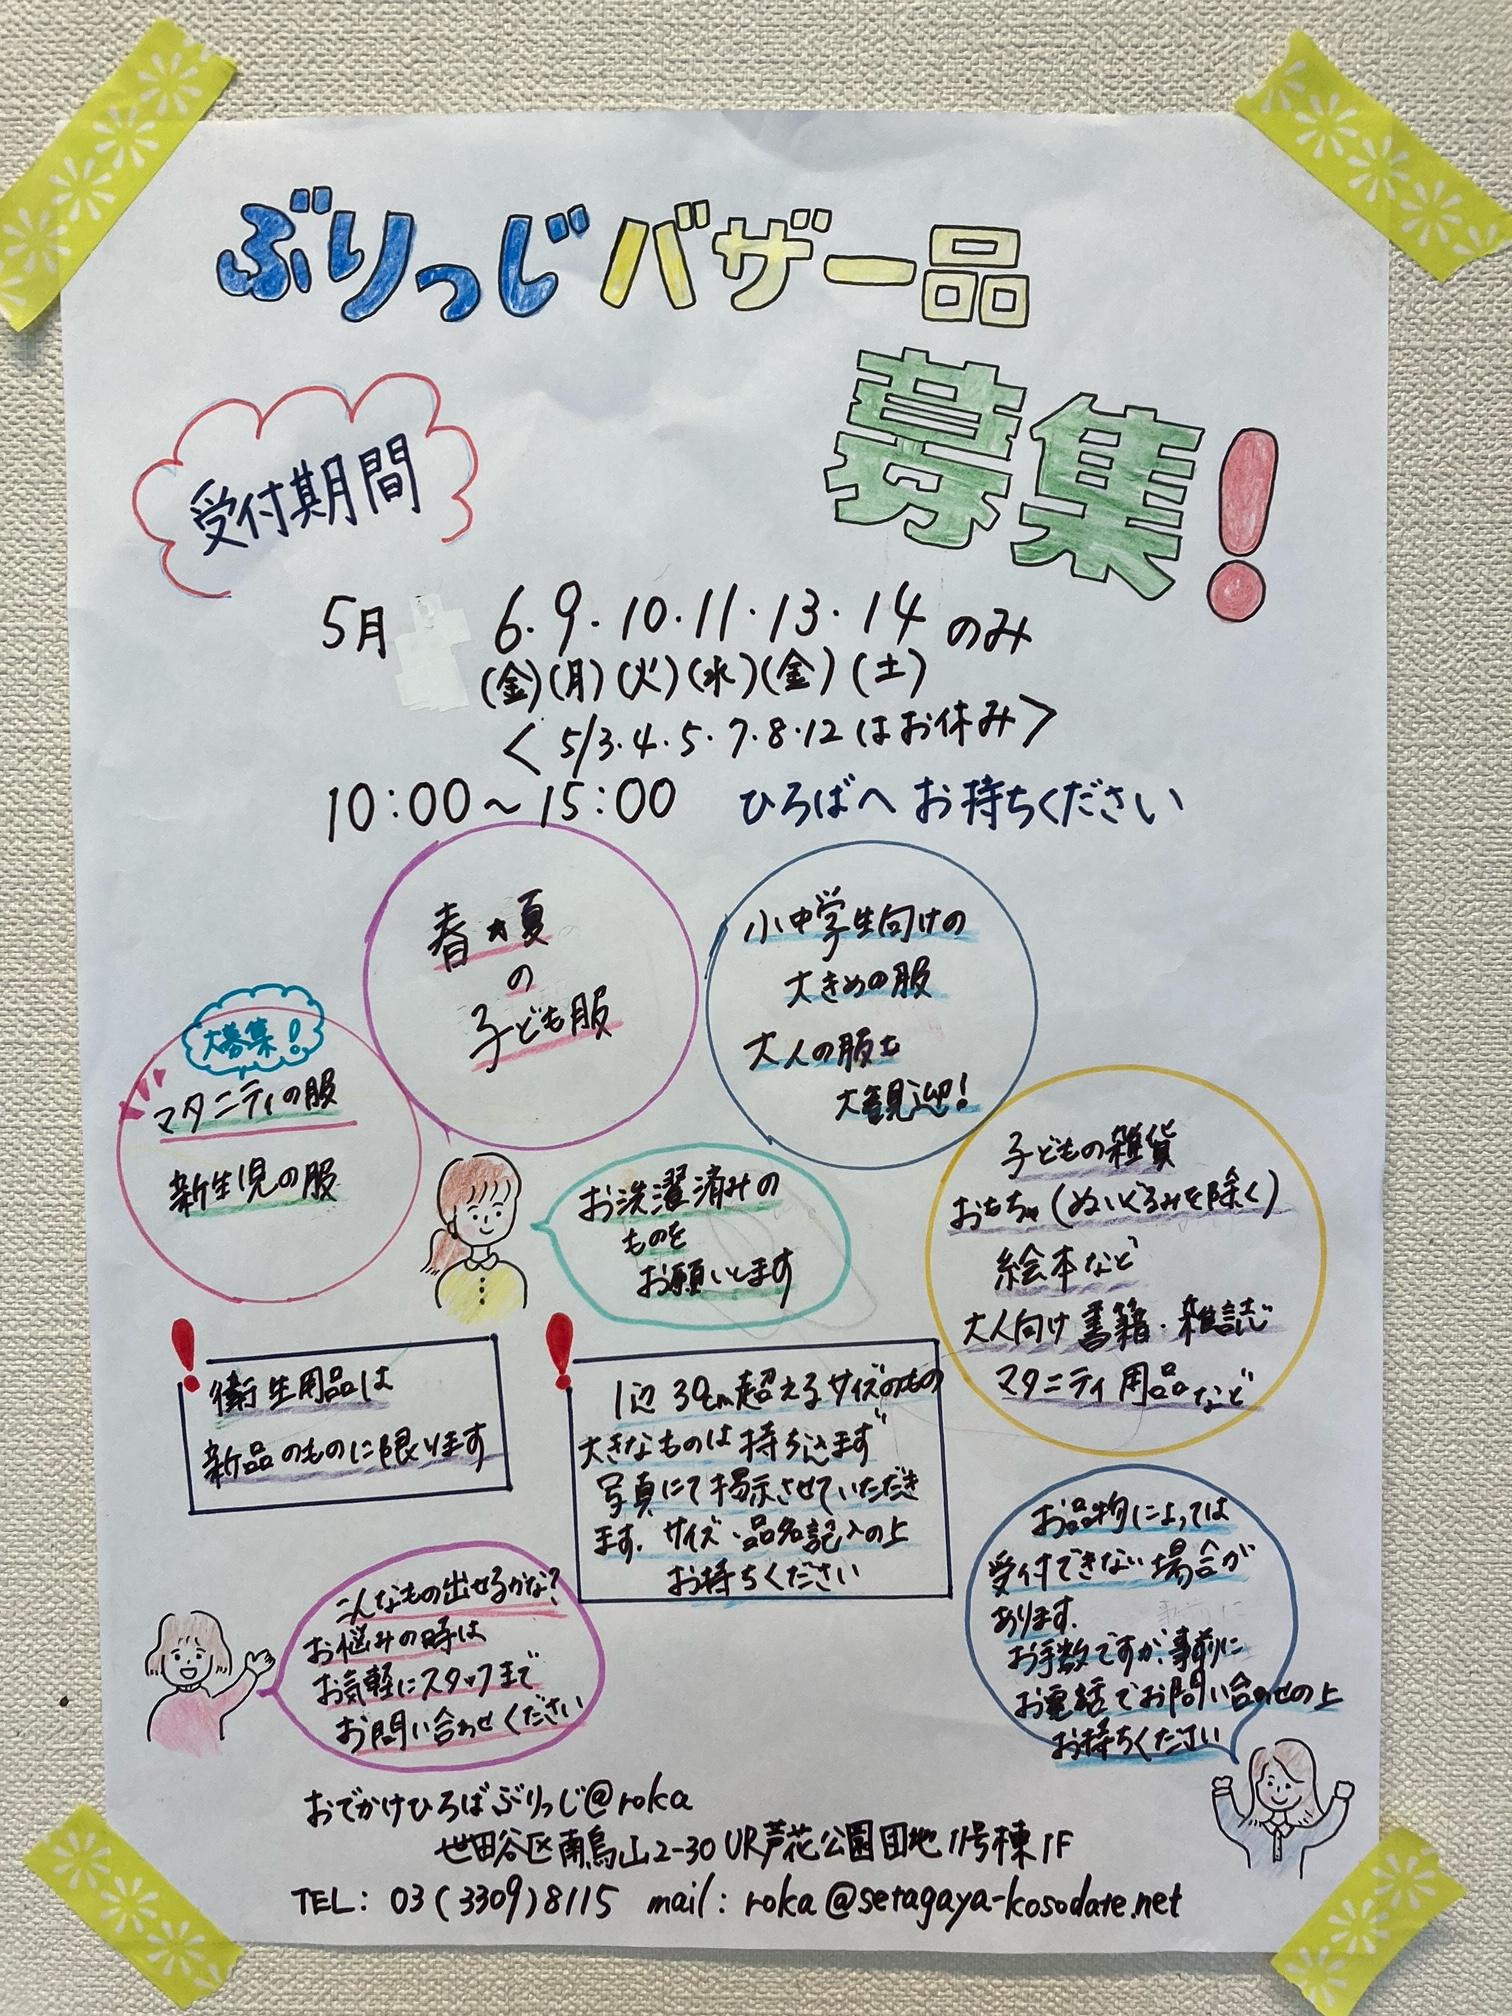 ぶりっじバザー品
募集!
受付期間
5月 6.9.10.11.13.14のみ
(金)(月)(火)(水)(金)(土)
<5/3.4.5.7.8.12はお休み>
10:00~15:00 ひろばへお持ちください
春★夏
の
子ども服
小中学生向けの
大きめの服
大人の服も
大歓迎!
大募集!
マタニティの服
新生児の服
お洗濯済みの
ものを
お願いします
子どもの雑貨
おもちゃ(ぬいぐるみを除く)
絵本など
大人向け書籍・雑誌
マタニティ用品など
衛生用品は
新品のものに限ります
1辺30cm超えるサイズのもの
大きなものは持ち込まず
写真にて掲示させていただき
ます.サイズ・品名記入の上
お持ちください
こんなもの出せるかな?
お悩みの時は
お気軽にスタッフまで
お問い合わせください
お品物によっては
受付できない場合が
あります.
お手数ですが、事前に
お電話でお問い合わせの上
お持ちください
おでかけひろばぶりっじ@roka
世田谷区南烏山2-30UR芦花公園団地11号棟1F
TEL: 03(3309)8115 mail: roka@setagaya-kosodate.net